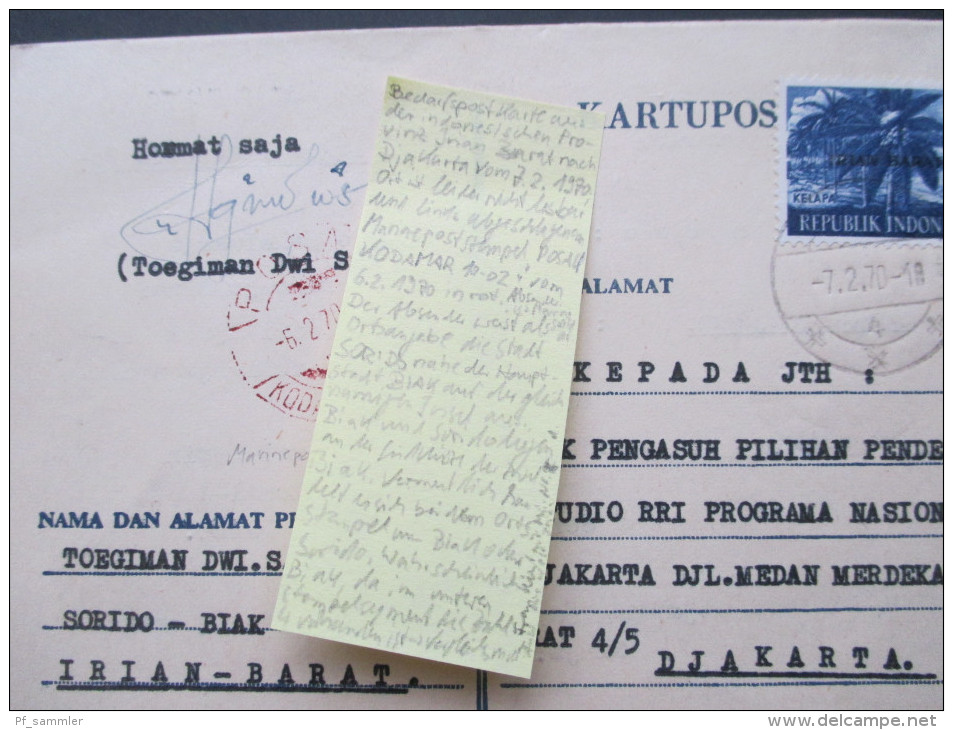 KARTUPOS
IRIAN BARAT
KELAPA
REPUBLIK INDON
Hormat saja
(Toegiman Dwi S
-6.2.70
KOD
ALAMAT
-7.2.70-18
4
KEPADA JTH :
K PENGASUH PILIHAN PENDE
UDIO RRI PROGRAMA NASION
JAKARTA DJL.MEDAN MERDEKA
RAT 4/5
DJAKARTA.
NAMA DAN ALAMAT PE
TOEGIMAN DWI.S
SORIDO - BIAK
IRIAN-BARAT.
Marinepo
Bedarfspostkarte aus
der indonesischen Pro-
vinz Irian Barat nach
Djakarta vom 7.2.1970,
Ort ist leider nicht lesbar
und links abgeschlagenem
Marinepoststempel POSAL
KODAMAR 10-02 vom
6.2.1970 in rot. Absender
Der Absender weist als
Ortsangabe die Stadt
SORIDO nahe der Haupt-
stadt BIAK auf der gleich
namigen Insel aus.
Biak und Sorido liegen
an der Südküste der Insel
Biak. Vermutlich han-
delt es sich bei dem Orts-
stempel um Biak oder
Sorido, wahrscheinlich
Biak, da im unteren
Stempelsegment die Zahl
4 vorhanden ist
Pf_sammler